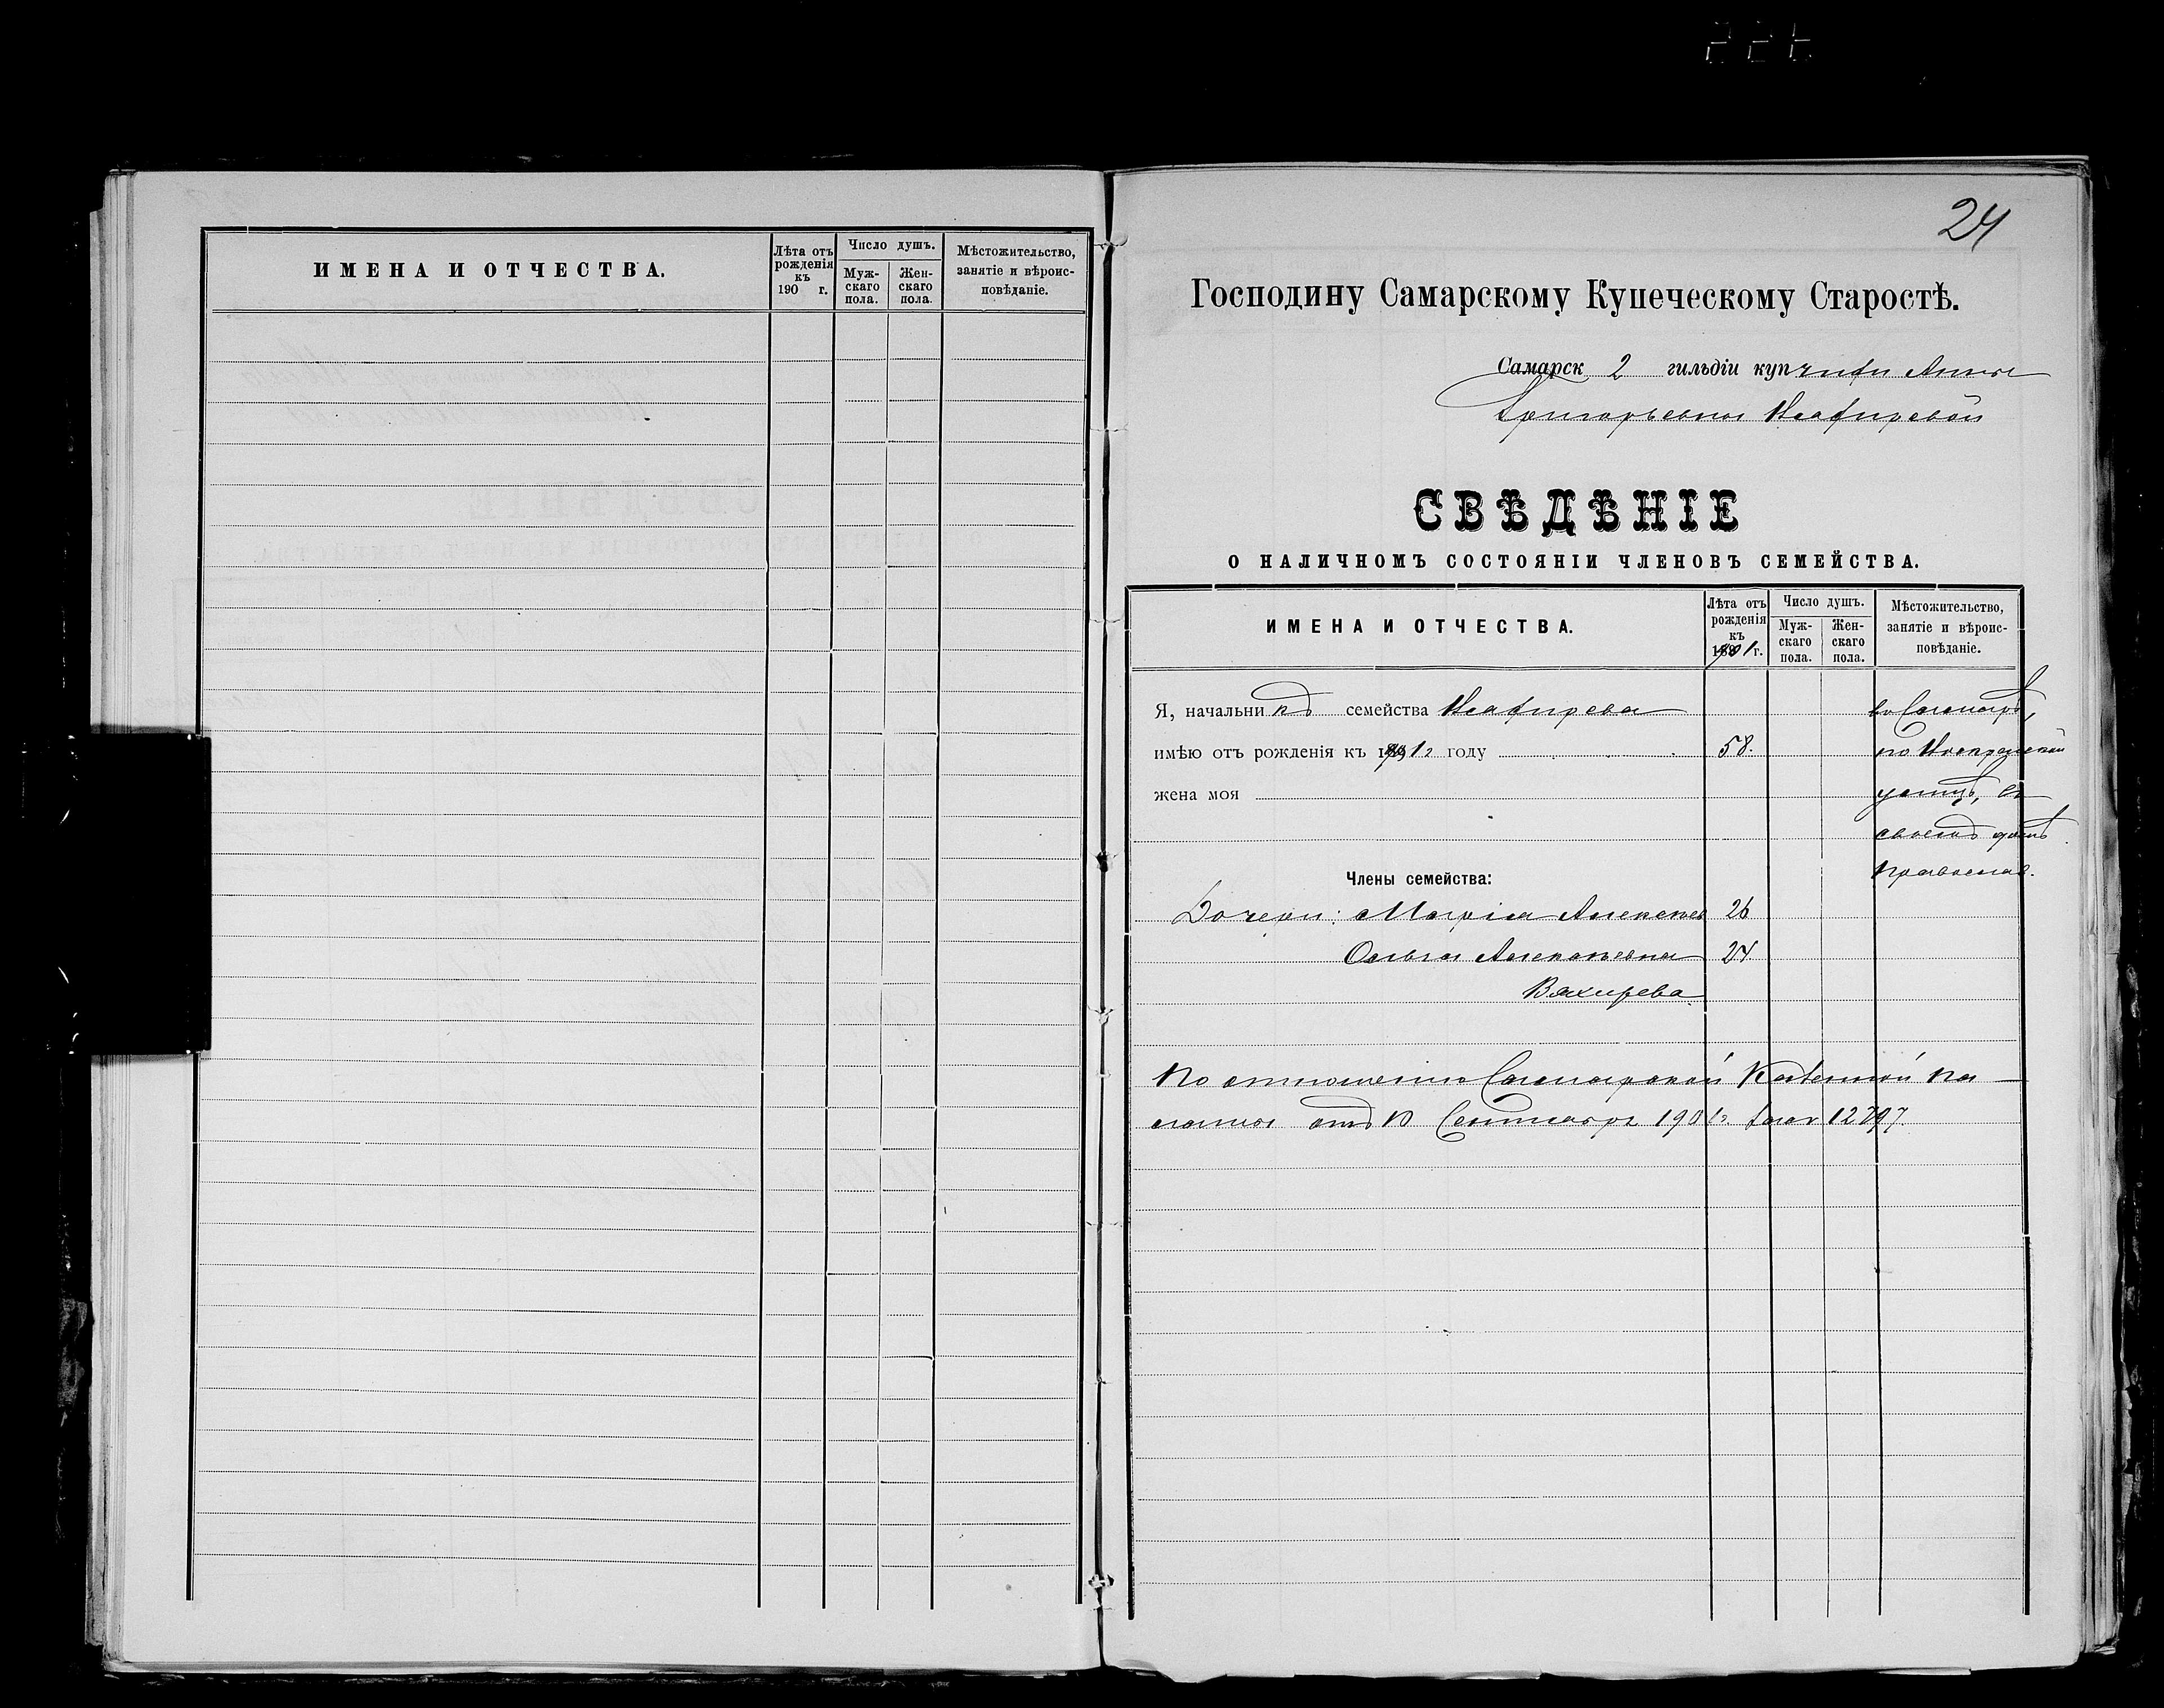 ИМЕНА И ОТЧЕСТВА.
Лѣта отъ рожденія къ 190 г.
Число душъ.
Мужскаго пола.
Женскаго пола.
Мѣстожительство, занятіе и вѣроисповѣданіе.
24
Господину Самарскому Купеческому Старостѣ.
Самарск 2 гильдіи купчихи Анны
Григорьевны
СВѢДѢНІЕ
О НАЛИЧНОМЪ СОСТОЯНІИ ЧЛЕНОВЪ СЕМЕЙСТВА.
ИМЕНА И ОТЧЕСТВА.
Лѣта отъ рожденія къ 1901 г.
Число душъ.
Мужскаго пола.
Женскаго пола.
Мѣстожительство, занятіе и вѣроисповѣданіе.
Я, начальникъ семейства
въ Самарѣ,
имѣю отъ рожденія къ 1901 г. году 58.
по
жена моя
улицѣ, въ
своемъ домѣ
православ.
Члены семейства:
Дочери: Марія Алексѣев 26
Ольга Алексѣевна 24.
Вахирева.
По отношенію Самарской Казенной Па
латы отъ 10 Сентября 1901 г. за № 12797.